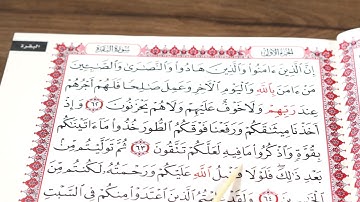 الجزء الأول سورة البقرة البقرة
إِنَّ الَّذِينَ ءَامَنُوا وَالَّذِينَ هَادُوا وَالنَّصَٰرَىٰ وَالصَّٰبِـِٔينَ
مَنْ ءَامَنَ بِاللَّهِ وَالْيَوْمِ الْءَاخِرِ وَعَمِلَ صَٰلِحًا فَلَهُمْ أَجْرُهُمْ
عِندَ رَبِّهِمْ وَلَا خَوْفٌ عَلَيْهِمْ وَلَا هُمْ يَحْزَنُونَ ٦٢ وَإِذْ
أَخَذْنَا مِيثَٰقَكُمْ وَرَفَعْنَا فَوْقَكُمُ الطُّورَ خُذُوا مَا ءَاتَيْنَٰكُم
بِقُوَّةٍ وَاذْكُرُوا مَا فِيهِ لَعَلَّكُمْ تَتَّقُونَ ٦٣ ثُمَّ تَوَلَّيْتُم مِّن
بَعْدِ ذَٰلِكَ فَلَوْلَا فَضْلُ اللَّهِ عَلَيْكُمْ وَرَحْمَتُهُ لَكُنتُم مِّنَ
الَّذِينَ اعْتَدَوْا مِنكُمْ فِي السَّبْتِ